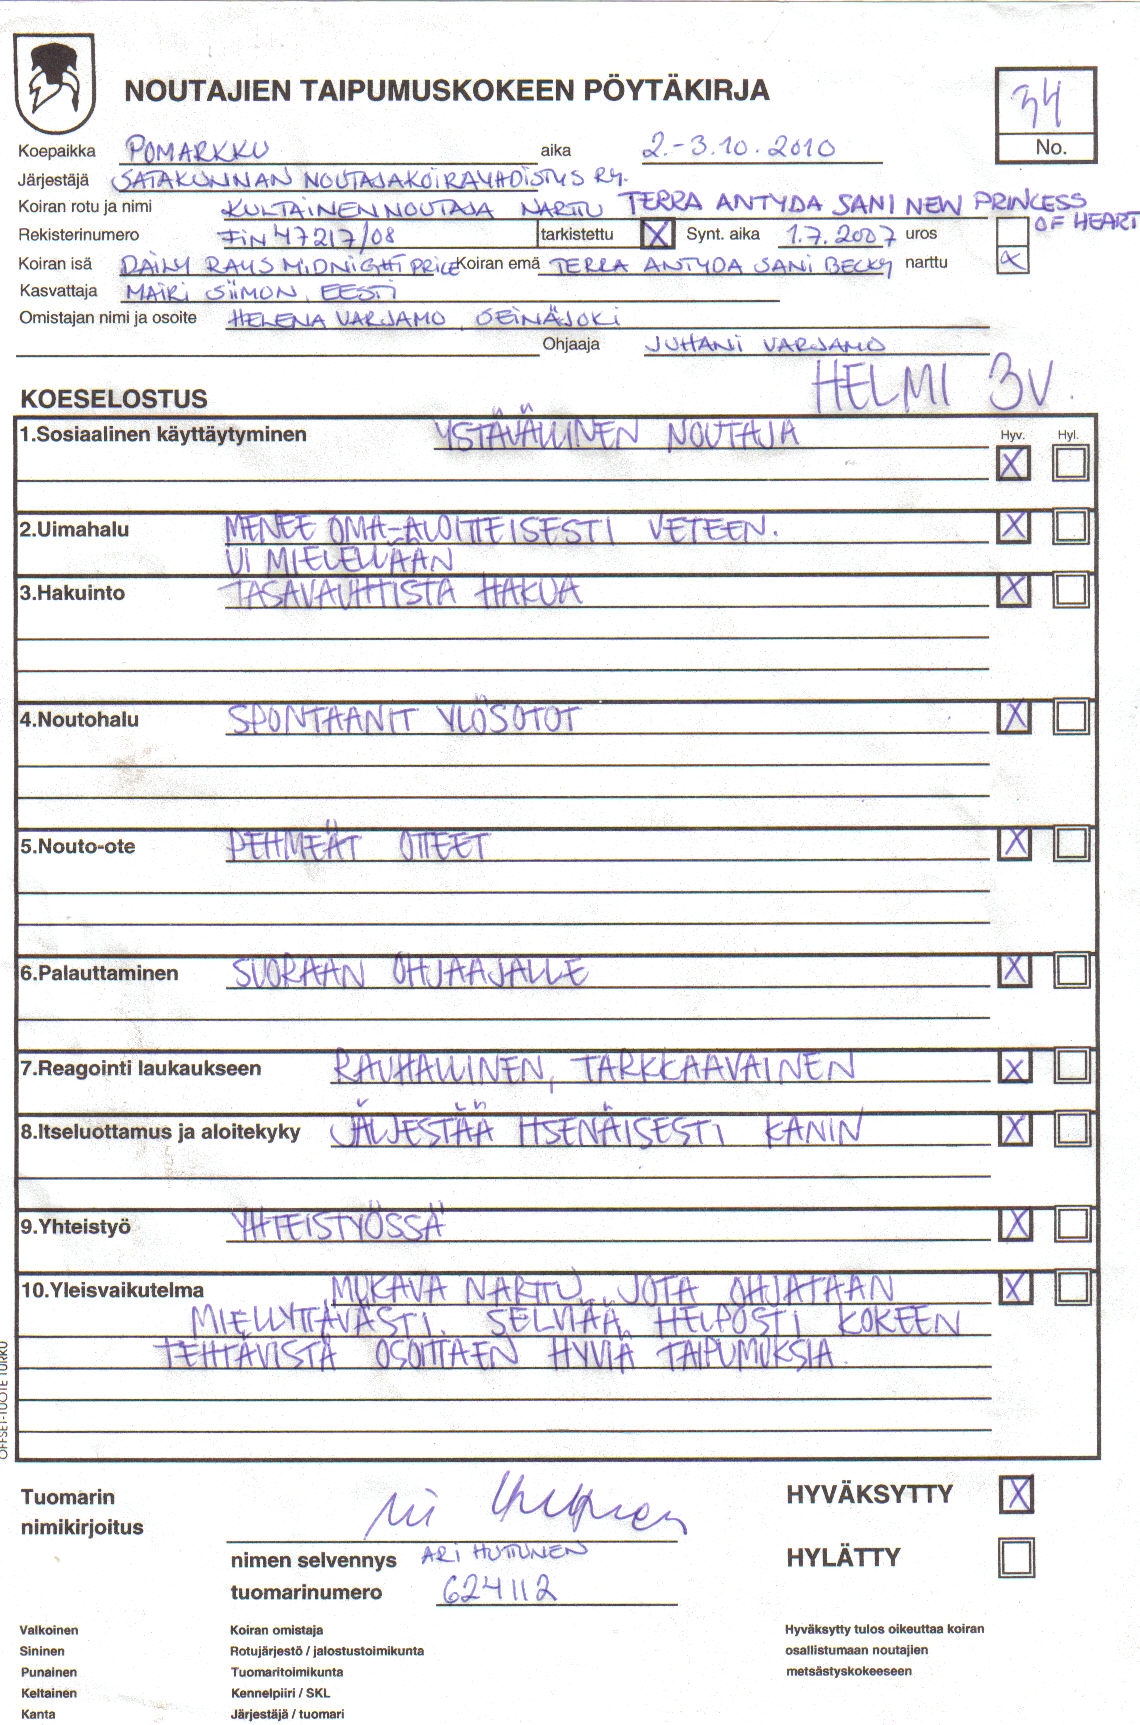 NOUTAJIEN TAIPUMUSKOKEEN PÖYTÄKIRJA
34
No.
Koepaikka POMARKKU aika 2.-3.10.2010
Järjestäjä SATAKUNNAN NOUTAJAKOIRAYHDISTYS RY.
Koiran rotu ja nimi KULTAINENNOUTAJA NARTTU TERRA ANTYDA SANI NEW PRINCESS OF HEART
Rekisterinumero FIN 47217/08 tarkistettu X Synt. aika 1.7.2007 uros
Koiran isä DAILY RAYS MIDNIGHT PRICE Koiran emä TERRA ANTYDA SANI BECKY narttu X
Kasvattaja MAIRI SIIMON, EESTI
Omistajan nimi ja osoite HELENA VARJAMO, SEINÄJOKI
Ohjaaja JUHANI VARJAMO
KOESELOSTUS HELMI 3V.
1.Sosiaalinen käyttäytyminen YSTÄVÄLLINEN NOUTAJA Hyv. Hyl.
X
2.Uimahalu MENEE OMA-ALOITTEISESTI VETEEN. X
UI MIELELLÄÄN
3.Hakuinto TASAVAUHTISTA HAKUA X
4.Noutohalu SPONTAANIT YLÖSOTOT X
5.Nouto-ote PEHMEÄT OTTEET X
6.Palauttaminen SUORAAN OHJAAJALLE X
7.Reagointi laukaukseen RAUHALLINEN, TARKKAAVAINEN X
8.Itseluottamus ja aloitekyky JÄLJESTÄÄ ITSENÄISESTI KANIN X
9.Yhteistyö YHTEISTYÖSSÄ X
10.Yleisvaikutelma MUKAVA NARTTU, JOTA OHJATAAN X
MIELLYTTÄVÄSTI. SELVIÄÄ HELPOSTI KOKEEN
TEHTÄVISTÄ OSOITTAEN HYVIÄ TAIPUMUKSIA.
OFFSET-TUOTE TURKU
Tuomarin
nimikirjoitus
HYVÄKSYTTY X
nimen selvennys ARI HUTTUNEN
HYLÄTTY
tuomarinumero 624112
Valkoinen Koiran omistaja Hyväksytty tulos oikeuttaa koiran
Sininen Rotujärjestö / jalostustoimikunta osallistumaan noutajien
Punainen Tuomaritoimikunta metsästyskokeeseen
Keltainen Kennelpiiri / SKL
Kanta Järjestäjä / tuomari